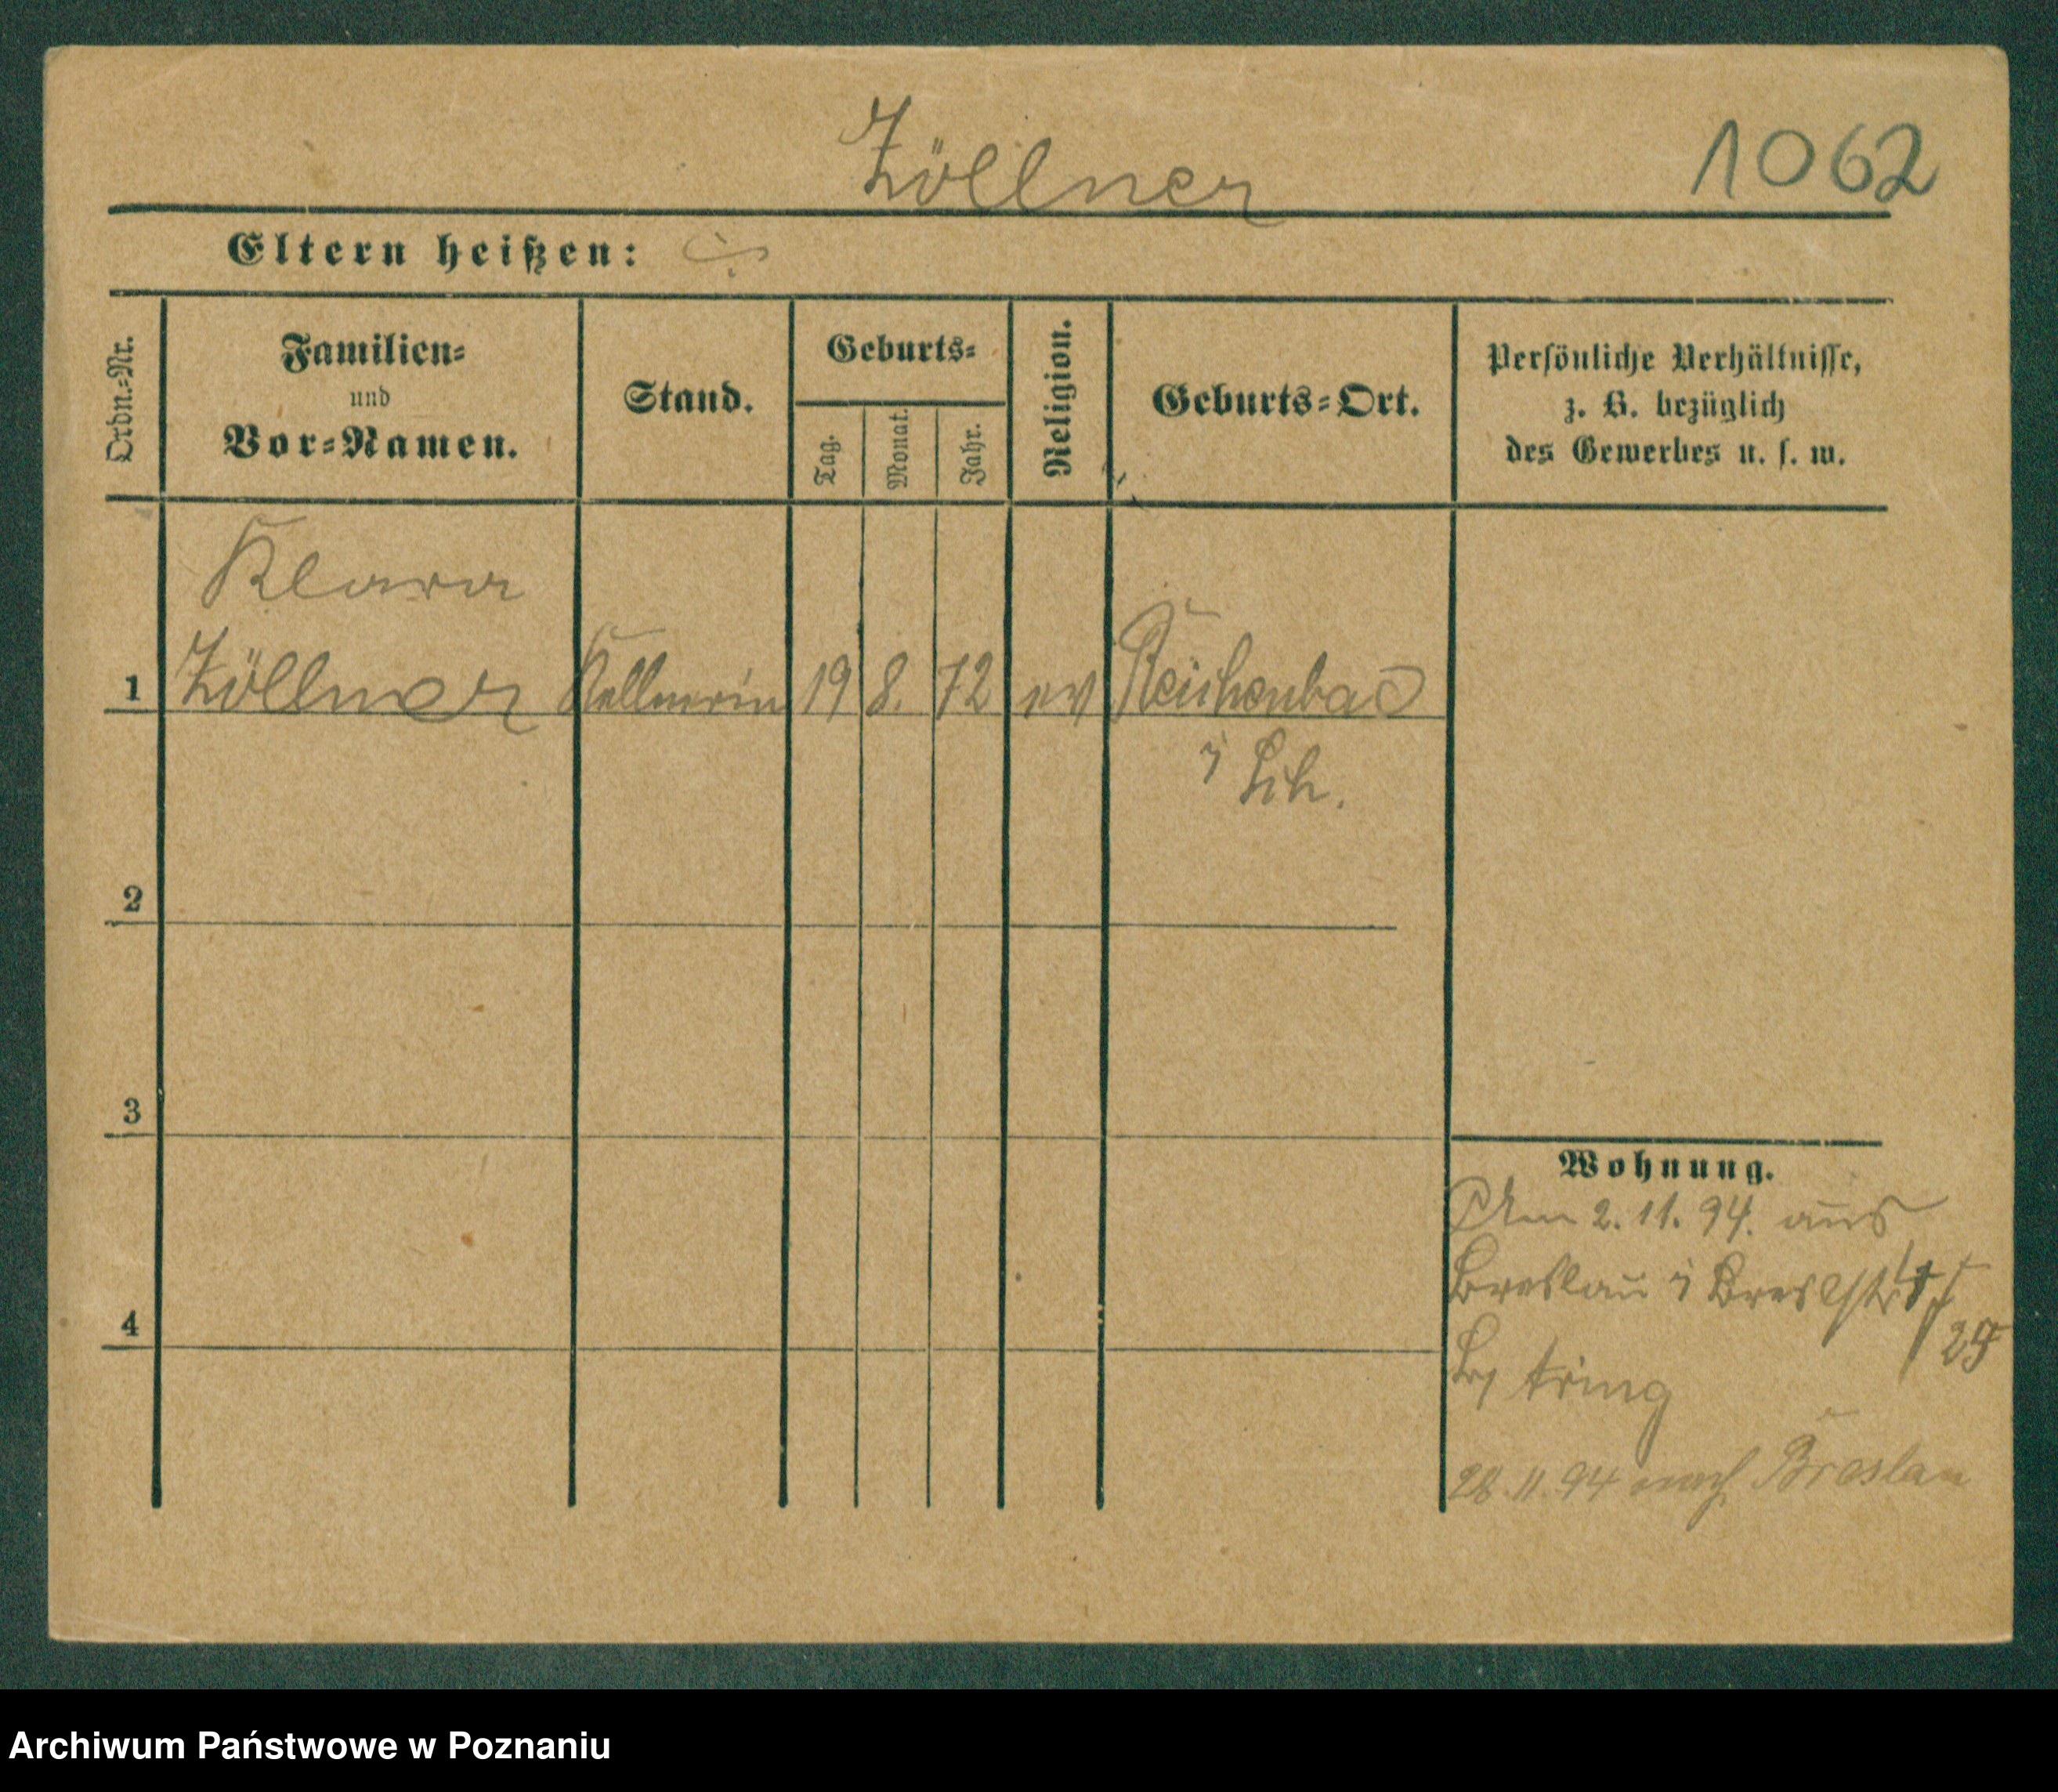 Zöllner 1062
Eltern heißen:
Ordn.-Nr.
Familien-
und
Vor-Namen.
Stand.
Geburts-
Tag. Monat. Jahr.
Religion.
Geburts-Ort.
Persönliche Verhältnisse,
z. B. bezüglich
des Gewerbes u. s. w.
Klara
1 Zöllner Kellnerin 19 8. 72 ev Reichenbach
i Sch.
2
3
4
Wohnung.
Am 2. 11. 94. aus
Breslau i Breslstr
25
by
28. 11. 94 nach Breslau
Archiwum Państwowe w Poznaniu